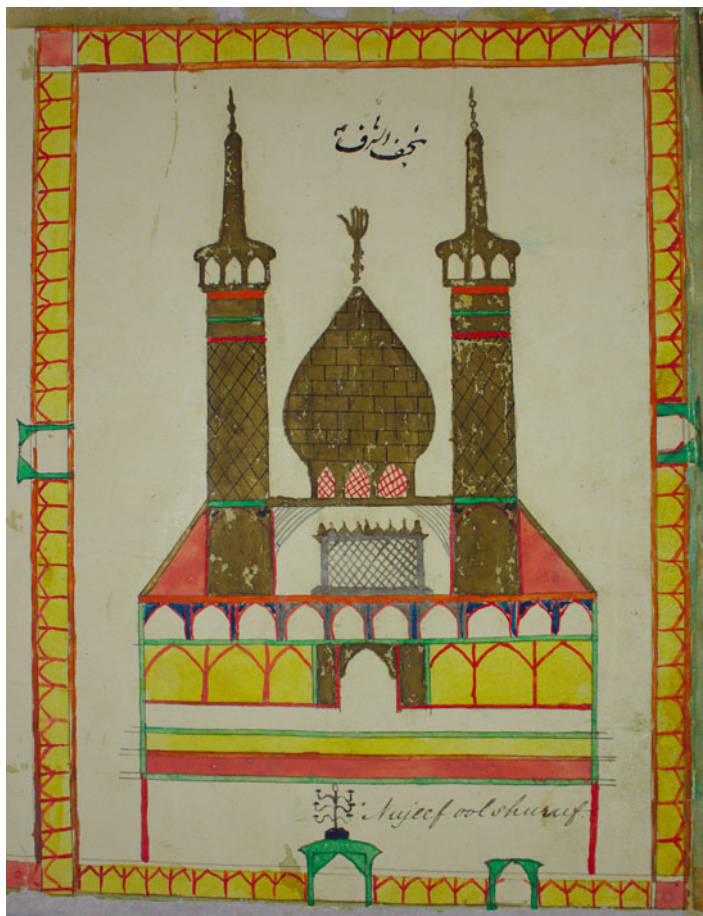 نجف الشرف
Nujeef ool shuruf